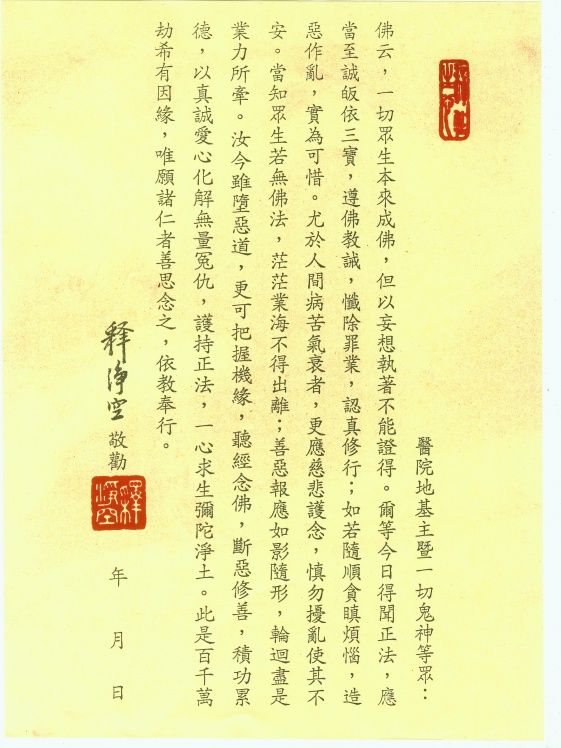 醫院地基主暨一切鬼神等眾：
佛云，一切眾生本來成佛，但以妄想執著不能證得。爾等今日得聞正法，應
當至誠皈依三寶，遵佛教誡，懺除罪業，認真修行；如若隨順貪瞋煩惱，造
惡作亂，實為可惜。尤於人間病苦氣衰者，更應慈悲護念，慎勿擾亂使其不
安。當知眾生若無佛法，茫茫業海不得出離；善惡報應如影隨形，輪迴盡是
業力所牽。汝今雖墮惡道，更可把握機緣，聽經念佛，斷惡修善，積功累
德，以真誠愛心化解無量冤仇，護持正法，一心求生彌陀淨土。此是百千萬
劫希有因緣，唯願諸仁者善思念之，依教奉行。
释淨空敬勸
年 月 日